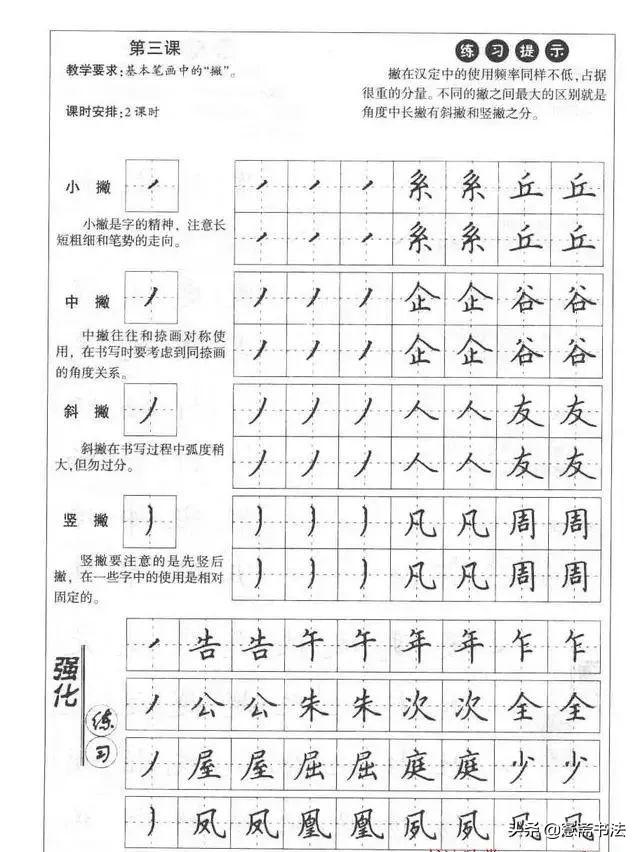 第三课
教学要求:基本笔画中的“撇”。
课时安排:2 课时
练习提示
撇在汉定中的使用频率同样不低,占据
很重的分量。不同的撇之间最大的区别就是
角度中长撇有斜撇和竖撇之分。
小 撇
小撇是字的精神，注意长
短粗细和笔势的走向。
系 系 丘 丘
系 系 丘 丘
中 撇
中撇往往和捺画对称使
用，在书写时要考虑到同捺画
的角度关系。
企 企 谷 谷
企 企 谷 谷
斜 撇
斜撇在书写过程中弧度稍
大,但勿过分。
人 人 友 友
人 人 友 友
竖 撇
竖撇要注意的是先竖后
撇，在一些字中的使用是相对
固定的。
凡 凡 周 周
凡 凡 周 周
强化
练习
告 告 午 午 年 年 乍 乍
公 公 朱 朱 次 次 全 全
屋 屋 屈 屈 庭 庭 少 少
凤 凤 凰 凰 夙 夙
头条 @ 斋书法